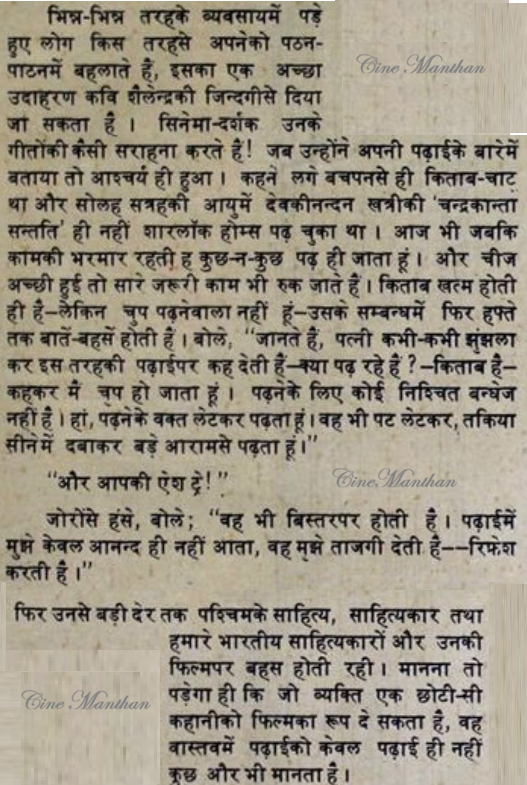 भिन्न-भिन्न तरहके व्यवसायमें पड़े
हुए लोग किस तरहसे अपनेको पठन-
पाठनमें बहलाते हैं, इसका एक अच्छा
उदाहरण कवि शैलेन्द्रकी जिन्दगीसे दिया
जा सकता है । सिनेमा-दर्शक उनके
गीतोंकी कैसी सराहना करते है! जब उन्होंने अपनी पढ़ाईके बारेमें
बताया तो आश्चर्य ही हुआ । कहने लगे बचपनसे ही किताब-चाट
था और सोलह सत्रहकी आयुमें देवकीनन्दन खत्रीकी 'चन्द्रकान्ता
सन्तति' ही नहीं शारलॉक होम्स पढ़ चुका था । आज भी जबकि
कामकी भरमार रहती ह कुछ-न-कुछ पढ़ ही जाता हूं । और चीज
अच्छी हुई तो सारे जरूरी काम भी रुक जाते हैं । किताब खत्म होती
ही है–लेकिन चुप पढ़नेवाला नहीं हूं–उसके सम्बन्धमें फिर हफ्ते
तक बातें-बहसें होती हैं । बोले, "जानते हैं, पत्नी कभी-कभी झुंझला
कर इस तरहकी पढ़ाईपर कह देती हैं–क्या पढ़ रहे हैं ?–किताब है–
कहकर मैं चुप हो जाता हूं । पढ़नेके लिए कोई निश्चित बन्धेज
नहीं है । हां, पढ़नेके वक्त लेटकर पढ़ता हूं । वह भी पट लेटकर, तकिया
सीनेमें दबाकर बड़े आरामसे पढ़ता हूं ।"
"और आपकी ऐश ट्रे! "
जोरोंसे हंसे, बोले; "वह भी बिस्तरपर होती है । पढ़ाईमें
मुझे केवल आनन्द ही नहीं आता, वह मुझे ताजगी देती है––रिफ्रेश
करती है ।"
फिर उनसे बड़ी देर तक पश्चिमके साहित्य, साहित्यकार तथा
हमारे भारतीय साहित्यकारों और उनकी
फिल्मपर बहस होती रही । मानना तो
पड़ेगा ही कि जो व्यक्ति एक छोटी-सी
कहानीको फिल्मका रूप दे सकता है, वह
वास्तवमें पढ़ाईको केवल पढ़ाई ही नहीं
कुछ और भी मानता है ।
Cine Manthan
Cine Manthan
Cine Manthan